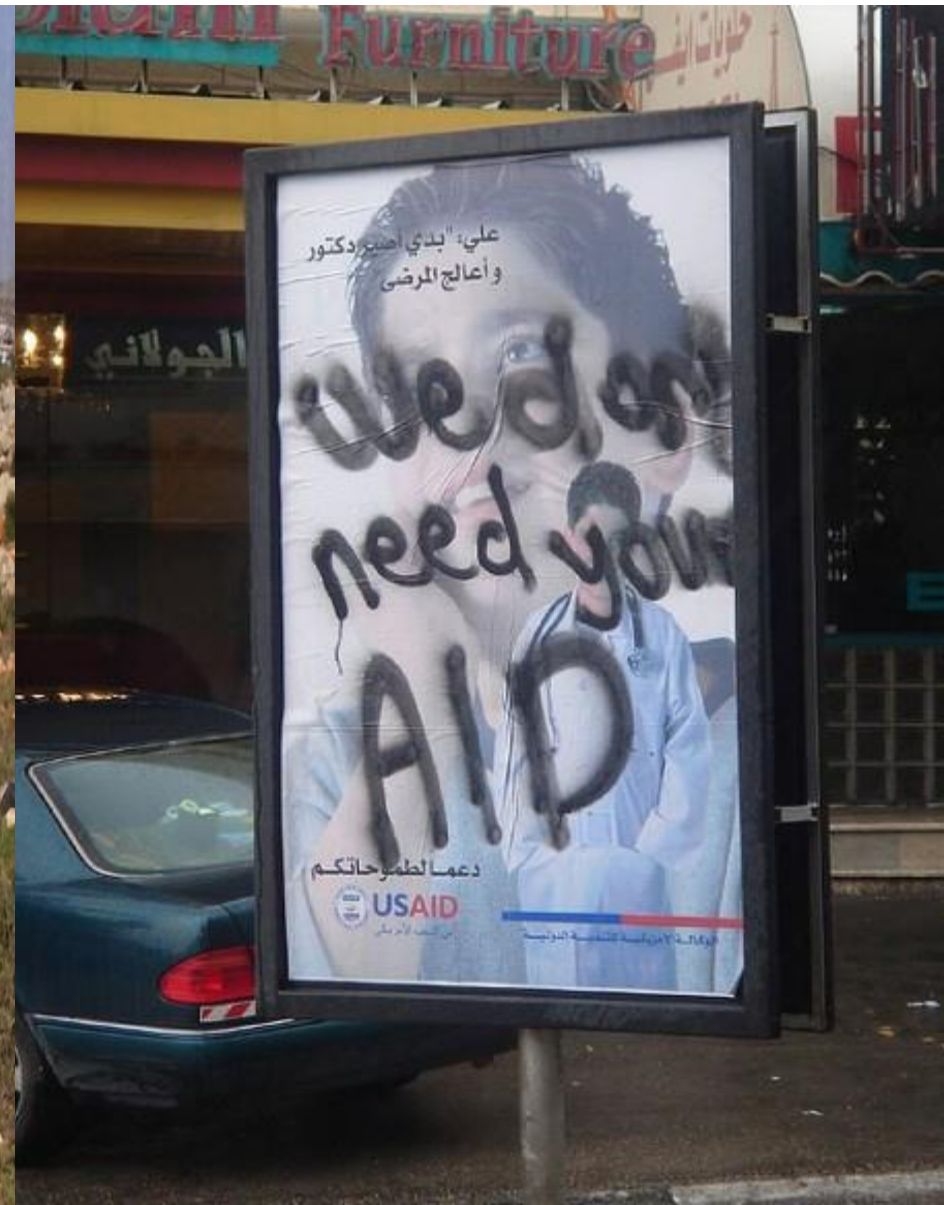 Furniture
حلويات
الجولاني
علي: "بدي أصير دكتور
و أعالج المرضى
we don
need your
AID
دعما لطموحاتكم
USAID
من الشعب الأمريكي
الوكالة الامريكية للتنمية الدولية